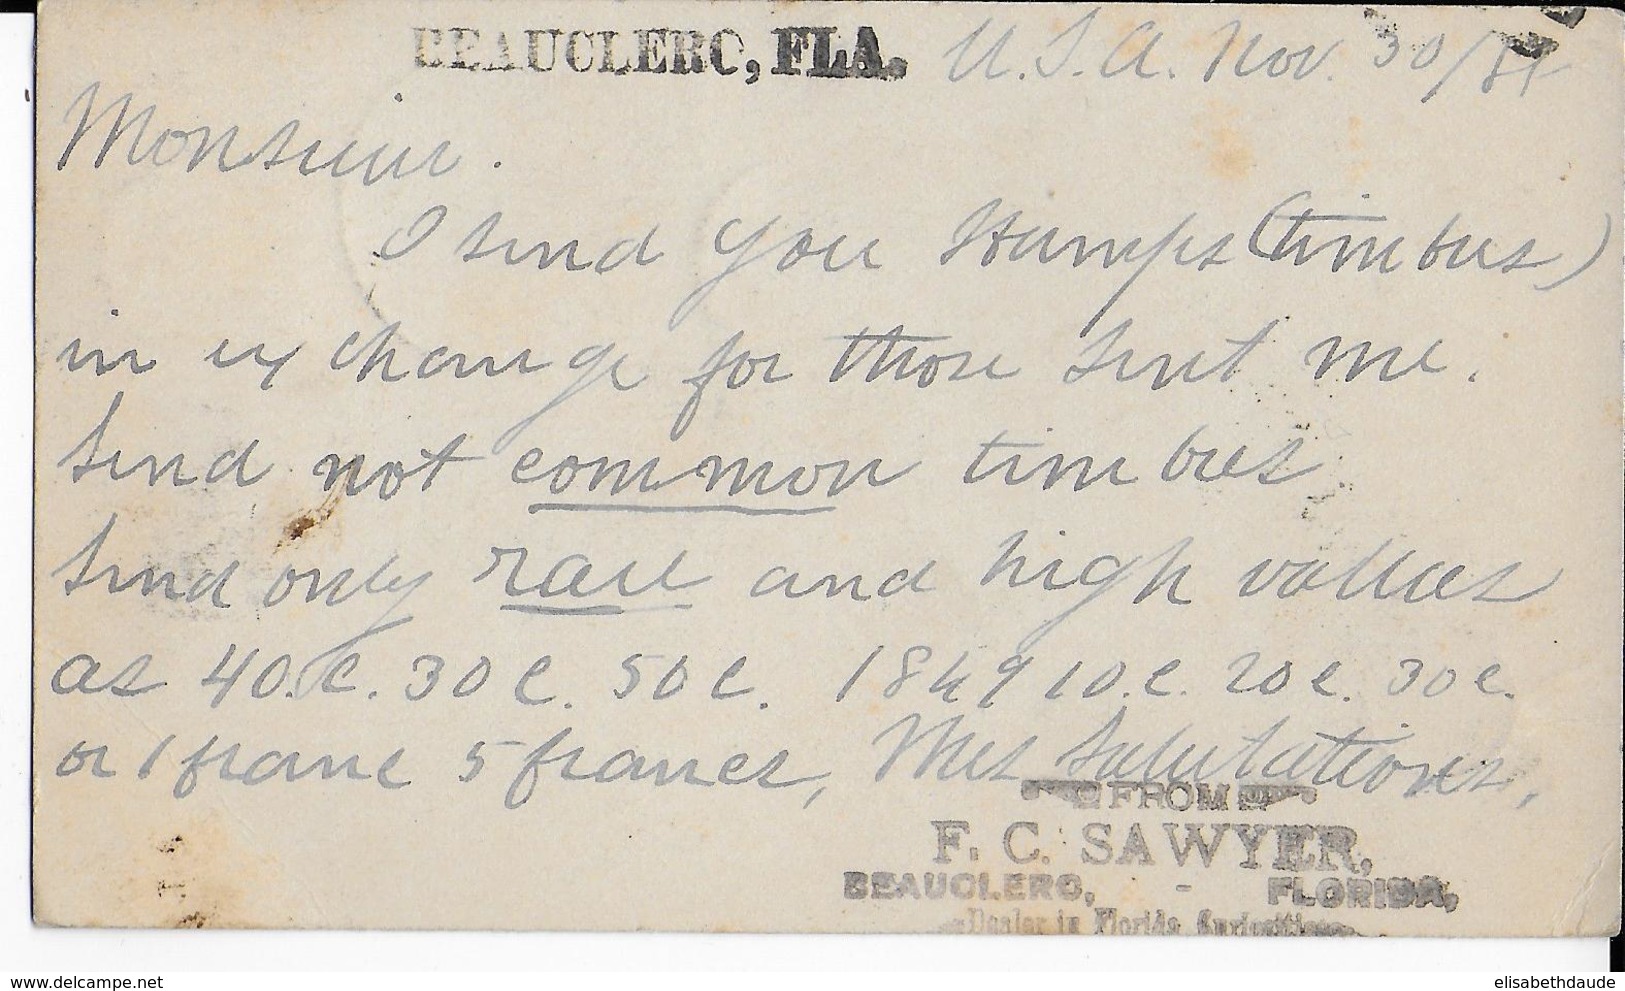 BEAUCLERC, FLA. U.S.A. Nov. 30/
Monsieur.
I send you stamps (timbres)
in exchange for those sent me.
Send not common timbres.
Send only rare and high values
as 40.c. 30c. 50c. 1849 10.c. 20c. 30c.
or 1 franc 5 francs, Mes Salutations.
FROM
F. C. SAWYER,
BEAUCLERC, - FLORIDA,
Dealer in Florida Curiosities
elisabethdaude